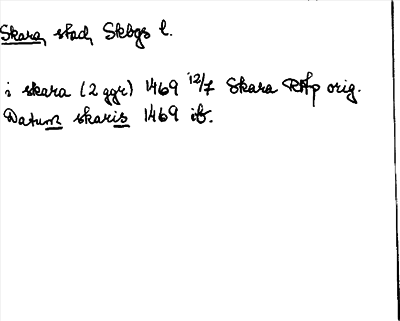 Skara, stad, Skbgs l.
i skara (2 ggr) 1469 12/7 Skara RAp orig.
Datum skaris 1469 ib.